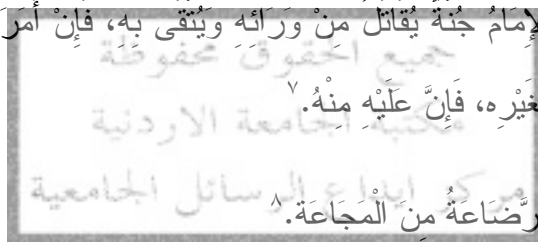 لإِمَامُ جُنَّةٌ يُقَاتَلُ مِنْ وَرَائِهِ وَيُتَّقَى بِهِ، فَإِنْ أَمَرَ
جميع الحقوق محفوظة
غَيْرِهِ، فَإِنَّ عَلَيْهِ مِنْهُ.٧
مكتبة الجامعة الاردنية
مركز ايداع الرسائل الجامعية
رَّضَاعَةُ مِنَ الْمَجَاعَةِ.٨